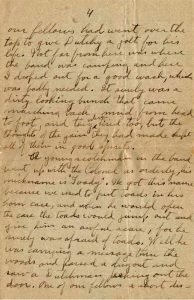 4
our fellows had went over the
top to give Dutchy a jolt for his
life. Not far from here was where
the band was camping and here
I doped out for a good wash, which
was badly needed. It surely was a
dirty looking bunch that came
marching back, mud from head
to foot, and tired but the
thoughts of the gain they had made kept
all of them in good spirits.
A young Scotchman in the band
went up with the Colonel as orderly, his
nickname is Toady. He got this name
because we used to put toads in his
horn case, and when he would open
the case the toads would jump out and
give him an awful scare, for he
surely was afraid of toads. Well he
was carrying a message thru the
woods and passed a dugout and
saw a Dutchman peeking out the
door. One of our fellows a short dis-